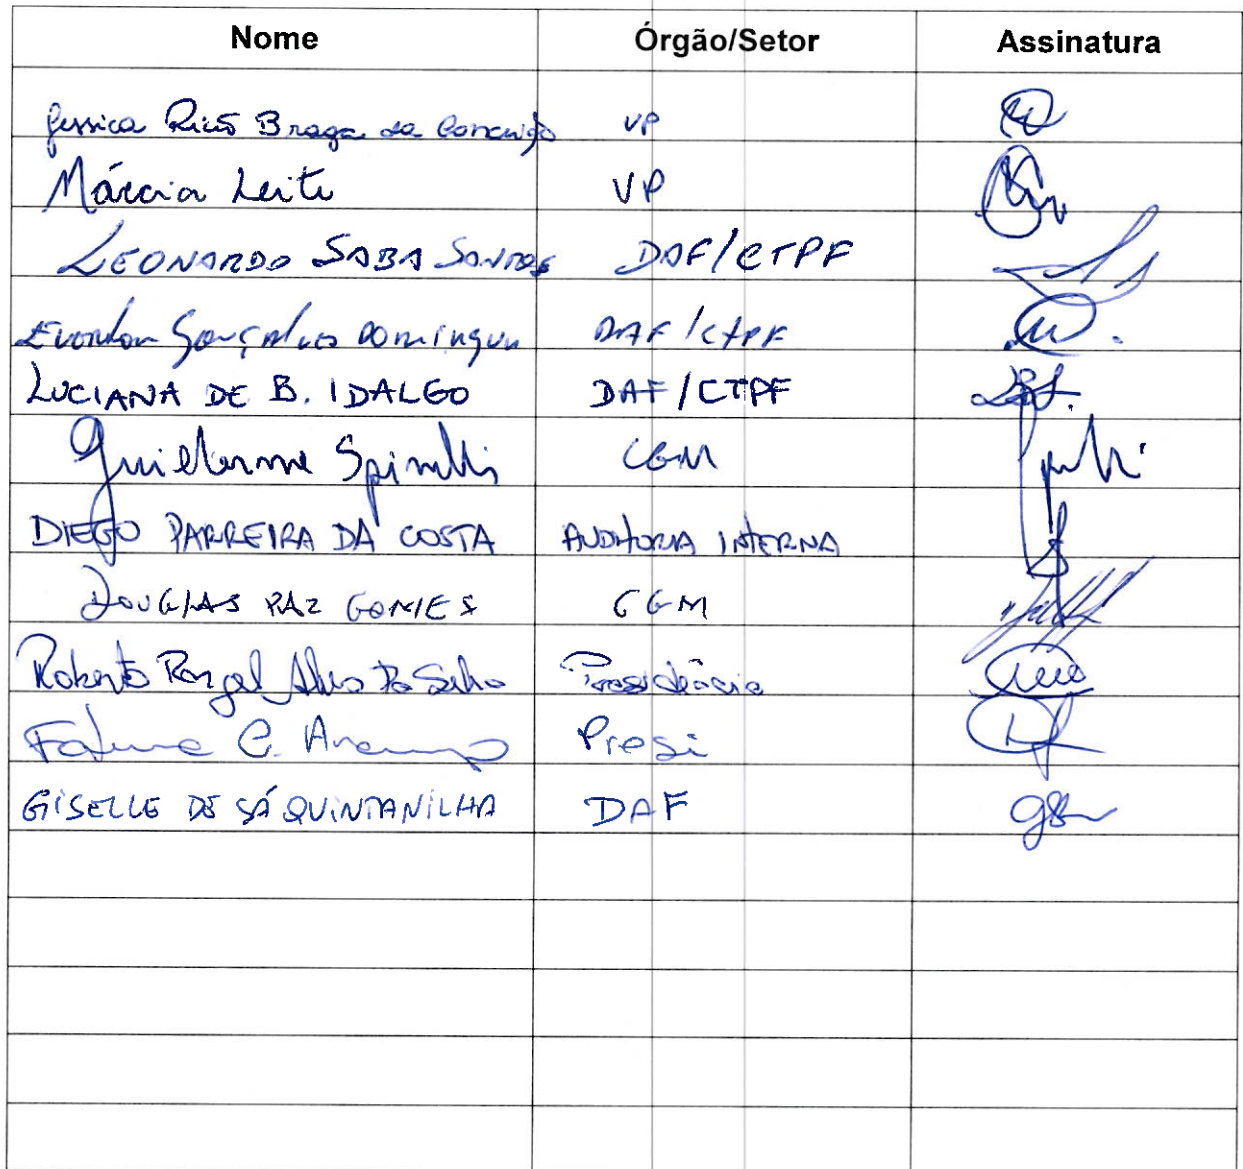 Nome Órgão/Setor Assinatura
Jessica Braga da Conceição VP
Márcia Leite VP
LEONARDO SABA SANTOS DAF/CTPF
Everton Gonçalves Domingues DAF/CTPF
LUCIANA DE B. IDALGO DAF/CTPF
Guilherme Spinelli CGM
DIEGO PARREIRA DA COSTA AUDITORIA INTERNA
DOUGLAS PAZ GOMES CGM
Roberto Rangel Alves Da Silva Presidência
C. Presi
GISELLE DE SÁ QUINTANILHA DAF